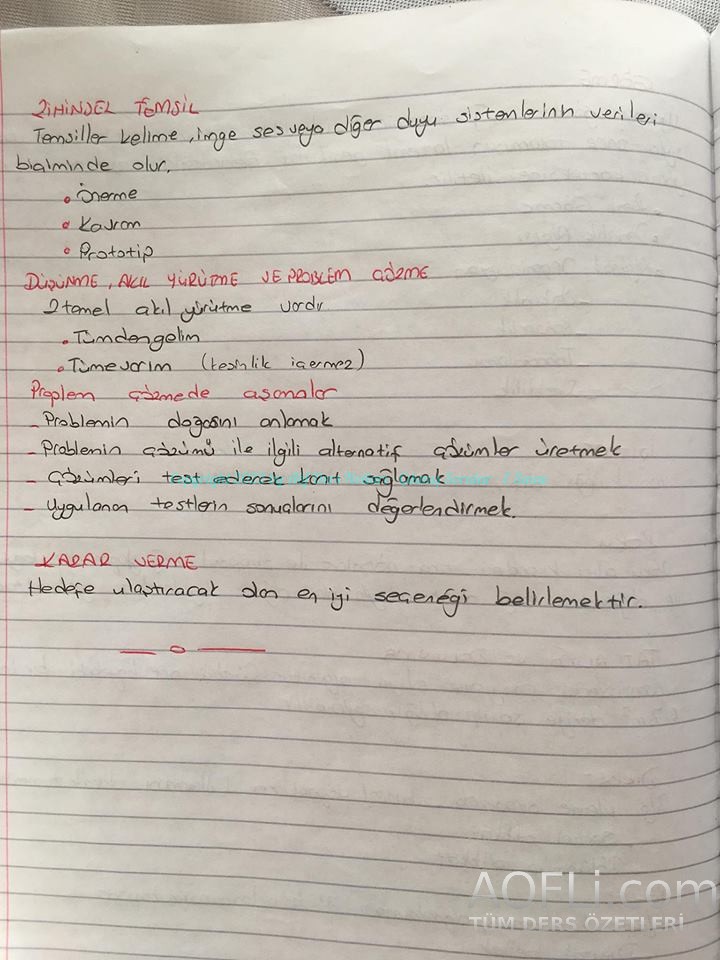 ZİHİNSEL TEMSİL
Temsiller kelime, imge ses veya diğer duyu sistemlerinin verileri
biçiminde olur.
• Önerme
• Kavram
• Prototip
DÜŞÜNME, AKIL YÜRÜTME VE PROBLEM ÇÖZME
2 temel akıl yürütme vardır
• Tümdengelim
• Tümevarım (kesinlik içermez)
Proplem çözmede aşamalar
- Problemin doğasını anlamak
- Problemin çözümü ile ilgili alternatif çözümler üretmek
- Çözümleri test ederek kanıt sağlamak
- Uygulanan testlerin sonuçlarını değerlendirmek.
KARAR VERME
Hedefe ulaştıracak olan en iyi seçeneği belirlemektir.
AOFLi.com
TÜM DERS ÖZETLERİ